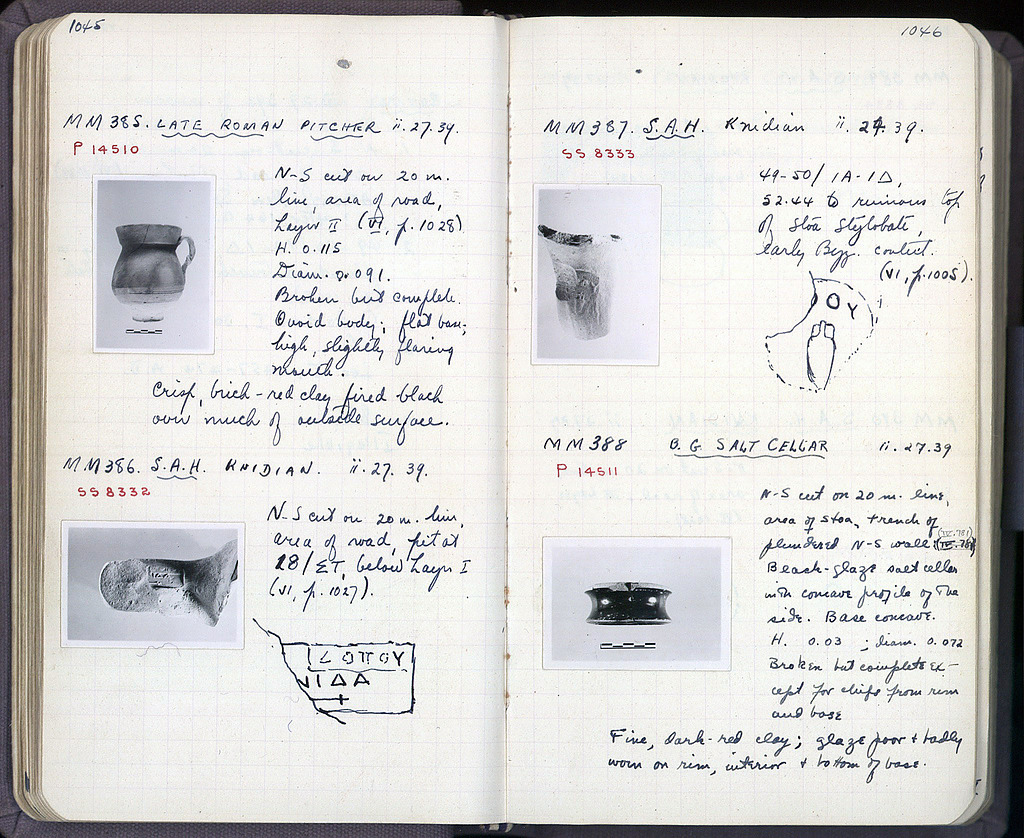 1045
MM385. LATE ROMAN PITCHER ii.27.39.
P 14510
N-S cut on 20 m.
line, area of road,
Layer II (VI, p.1028)
H. 0.115
Diam. 0.091.
Broken but complete.
Ovoid body; flat base;
high, slightly flaring
mouth.
Crisp, brick-red clay fired black
over much of outside surface.
MM386. S.A.H. KNIDIAN. ii.27.39.
SS 8332
N-S cut on 20 m. line,
area of road, pit at
28/ΣΤ, below Layer I
(VI, p.1027).
ΟΠΟΥ
ΙΔΑ
1046
MM387. S.A.H. Knidian ii. 39.
SS 8333
49-50/ΙΑ-ΙΔ,
52.44 to ruinous top
of Stoa Stylobate,
early Byz. context.
(VI, p.1005).
ΟΥ
MM388 B.G. SALT CELLAR ii.27.39
P 14511
N-S cut on 20 m. line,
area of Stoa, trench of
plundered N-S wall. (IV.781)
Black-glaze salt cellar
with concave profile of the
side. Base concave.
H. 0.03 ; diam. 0.072
Broken but complete ex-
cept for chips from rim
and base
Fine, dark-red clay; glaze poor + badly
worn on rim, interior + bottom of base.